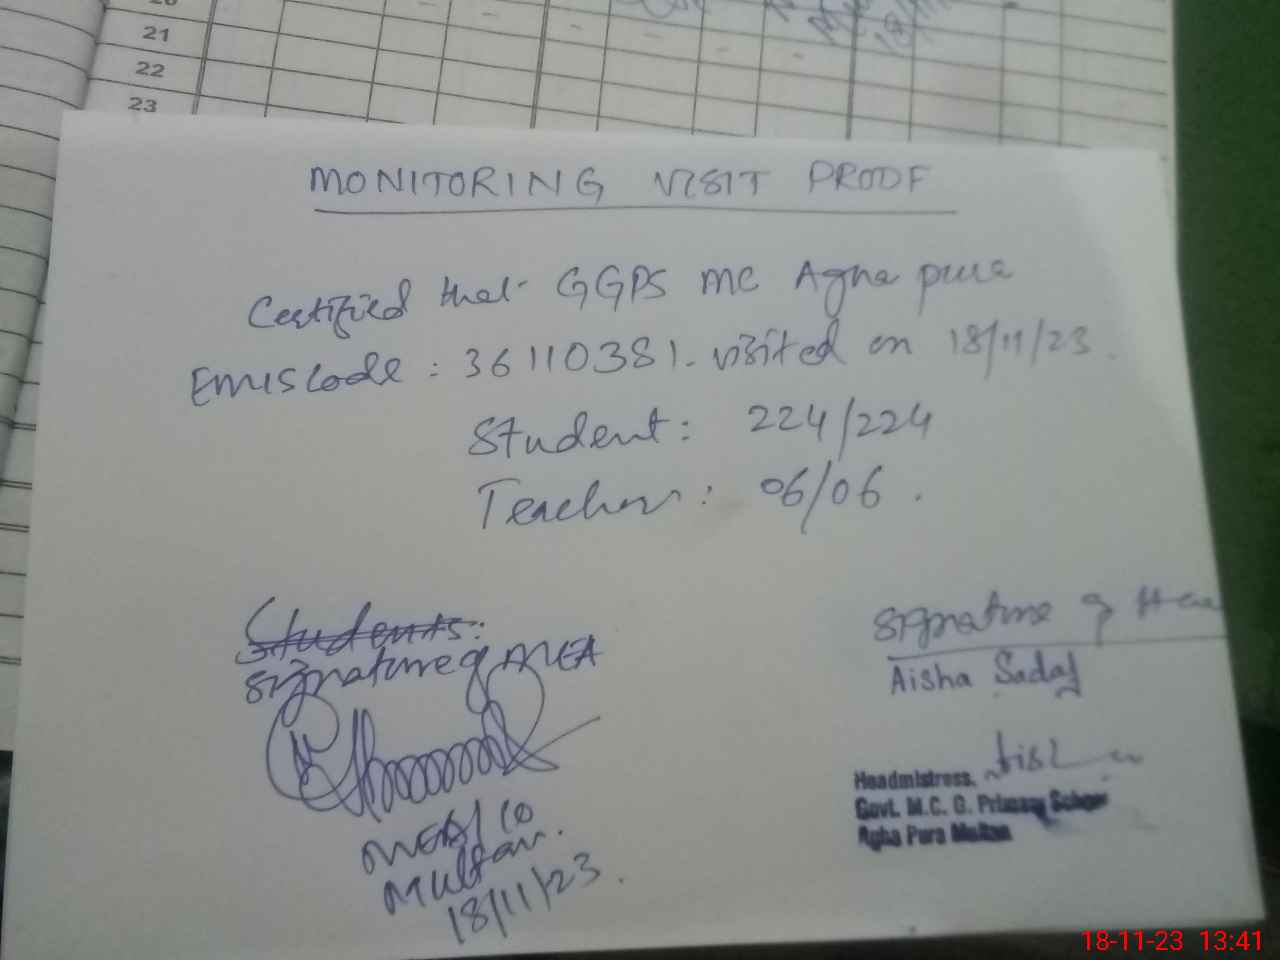 21
22
23
MONITORING VISIT PROOF
Certified that GGPS MC Agha pura
Emiscode : 36110381. visited on 18/11/23.
Student: 224/224
Teacher: 06/06.
Students:
Signature of MEA
MEA/10
Multan.
18/11/23.
Signature of Hea
Aisha Sadaf
Headmistress.
Govt. M.C. G. Primary School
Agha Pura Multan
18-11-23 13:41